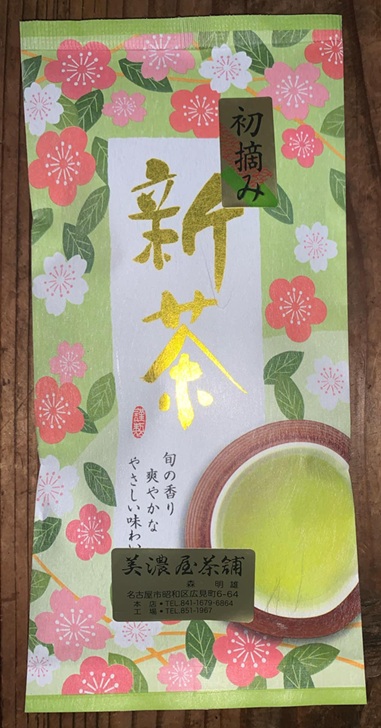 初摘み
新茶
謹製
旬の香り
爽やかな
やさしい味わい
美濃屋・茶舗
森 明雄
名古屋市昭和区広見町6-64
本店・TEL:841-1679・6864
工場・TEL:851-1967